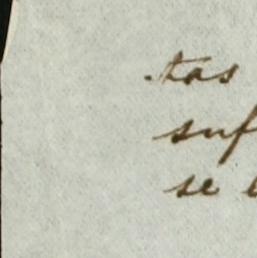 tas
suf
se